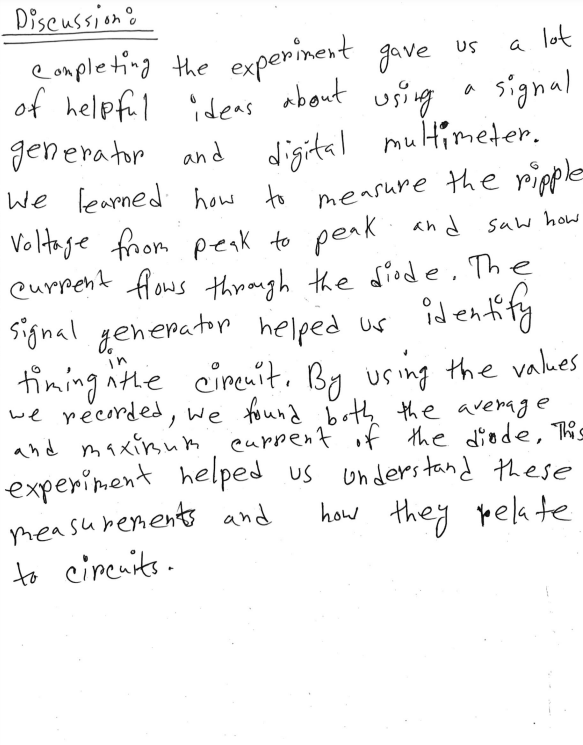 Discussion:
Completing the experiment gave us a lot
of helpful ideas about using a signal
generator and digital multimeter.
We learned how to measure the ripple
Voltage from peak to peak and saw how
current flows through the diode. The
signal generator helped us identify
timing in the circuit. By using the values
we recorded, we found both the average
and maximum current of the diode. This
experiment helped us understand these
measurements and how they relate
to circuits.